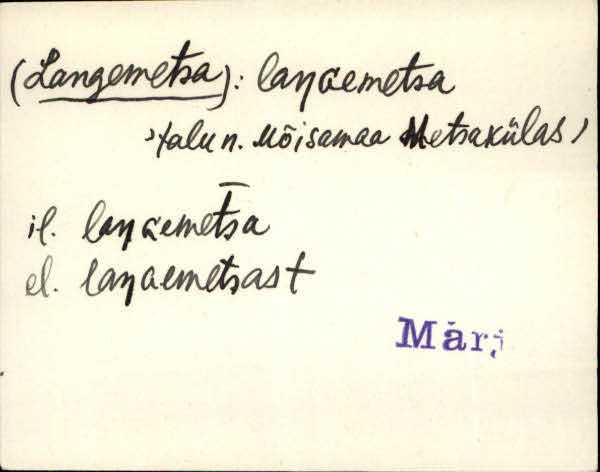 (Langemetsa): laŋɢemetsa
›talu n. Mõisamaa Metsakülas›
il. laŋɢemet̅sa
el. laŋɢemetsast
Märj